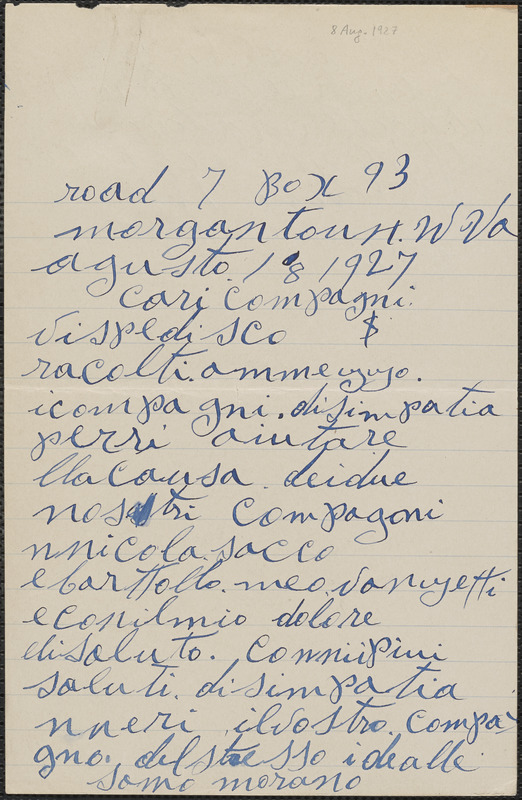 8 Aug. 1927
road 7 Box 93
morgantoun. W Va
agusto. 1 8 1927
cari compagni.
vispedisco $
racolti.
icompagni. disimpatia
perri aiutare
lla causa. deidue
nostri compagoni
nnicola. sacco
ebarttollo. meo. vanuzetti
econilmio dolore
disaluto. conniipiui
saluti. disimpatia
nneri ilvostro. compa-
gno. delstesso idealle
somo morano